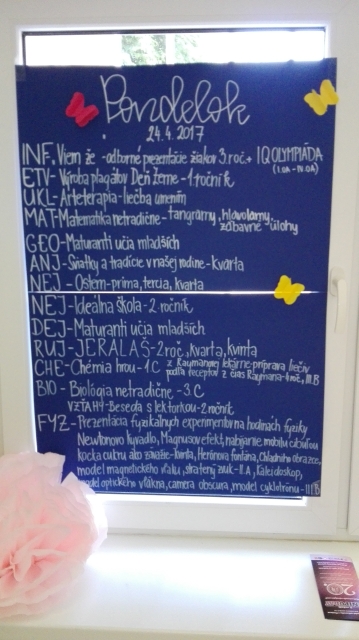 Pondelok
24.4.2017
INF. Viem že - odborné prezentácie žiakov 3.roč. + IQ OLYMPIÁDA
(I.OA - IV.OA)
ETV - Výroba plagátov Deň Zeme - 1.ročník
UKL - Arteterapia - liečba umením
MAT - Matematika netradične - tangramy, hlavolamy,
zábavné úlohy
GEO - Maturanti učia mladších
ANJ - Sviatky a tradície v našej rodine - Kvarta
NEJ - Ostern - príma, tercia, kvarta
NEJ - Ideálna škola - 2 ročník
DEJ - Maturanti učia mladších
RUJ - JERALAŠ - 2 roč, kvarta, kvinta
CHE - Chémia hrou - 1C z Raymanovej lekárne - príprava liečiv
podľa receptov z čias Raymana - 4roč, III.B
BIO - Biológia netradične - 3.C
VZŤAHY - Beseda s lektorkou - 2. ročník
FYZ - Prezentácia fyzikálnych experimentov na hodinách fyziky
Newtonovo kyvadlo, Magnusov efekt, nabíjanie mobilu cibuľou
kocka cukru ako závažie - kvinta, Herónova fontána, Chladniho obrazce,
model magnetického vlaku, stratený zvuk - II.A, Kaleidoskop,
model optického vlákna, camera obscura, model cyklotrónu - III.B
20